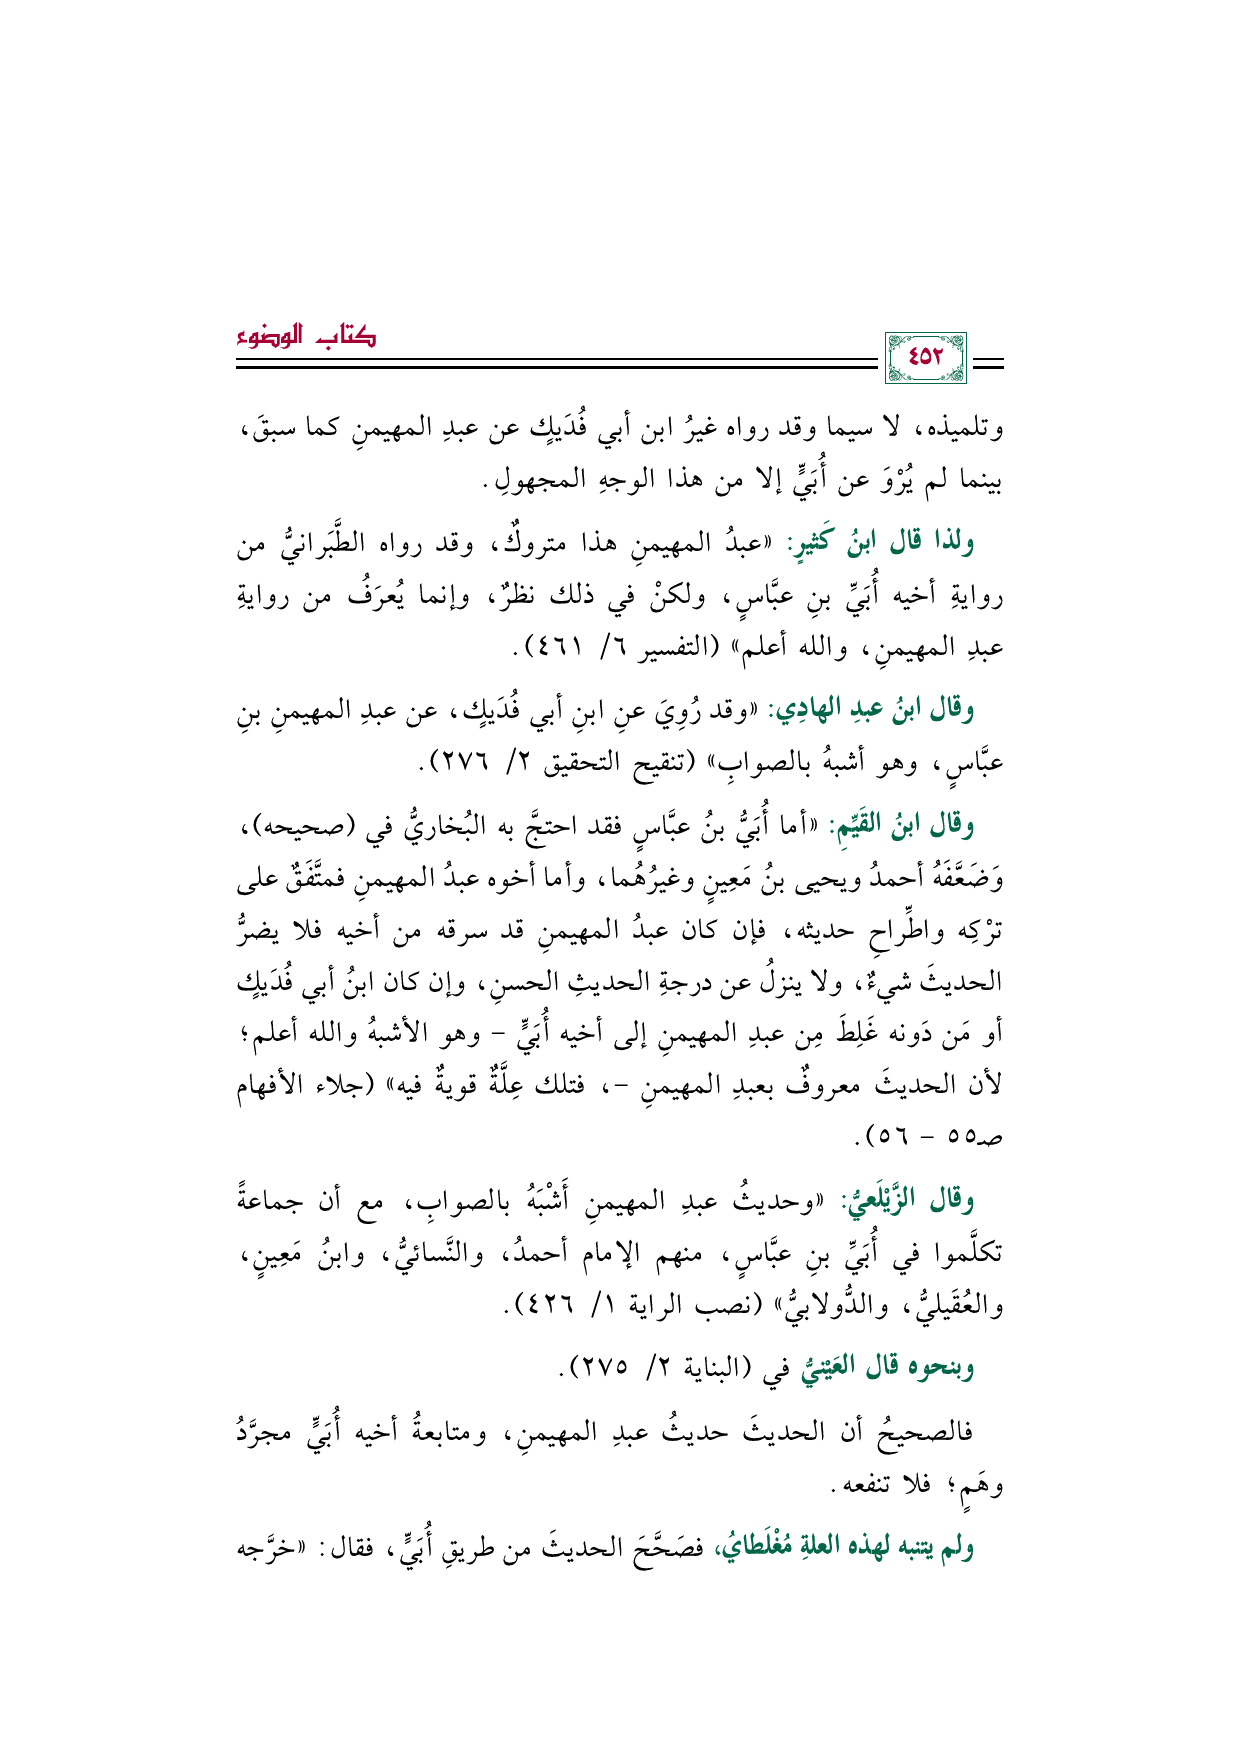 كتاب الوضوء
٤٥٢
وتلميذه، لا سيما وقد رواه غيرُ ابن أبي فُدَيكٍ عن عبدِ المهيمنِ كما سبقَ،
بينما لم يُرْوَ عن أُبَيٍّ إلا من هذا الوجهِ المجهولِ.
ولذا قال ابنُ كَثيرٍ: «عبدُ المهيمنِ هذا متروكٌ، وقد رواه الطَّبَرانيُّ من
روايةِ أخيه أُبَيِّ بنِ عبَّاسٍ، ولكنْ في ذلك نظرٌ، وإنما يُعرَفُ من روايةِ
عبدِ المهيمنِ، والله أعلم» (التفسير ٦/ ٤٦١).
وقال ابنُ عبدِ الهادِي: «وقد رُوِيَ عنِ ابنِ أبي فُدَيكٍ، عن عبدِ المهيمنِ بنِ
عبَّاسٍ، وهو أشبهُ بالصوابِ» (تنقيح التحقيق ٢/ ٢٧٦).
وقال ابنُ القَيِّمِ: «أما أُبَيُّ بنُ عبَّاسٍ فقد احتجَّ به البُخاريُّ في (صحيحه)،
وَضَعَّفَهُ أحمدُ ويحيى بنُ مَعِينٍ وغيرُهُما، وأما أخوه عبدُ المهيمنِ فمتَّفَقٌ على
ترْكِه واطِّراحِ حديثه، فإن كان عبدُ المهيمنِ قد سرقه من أخيه فلا يضرُّ
الحديثَ شيءٌ، ولا ينزلُ عن درجةِ الحديثِ الحسنِ، وإن كان ابنُ أبي فُدَيكٍ
أو مَن دَونه غَلِطَ مِن عبدِ المهيمنِ إلى أخيه أُبَيٍّ – وهو الأشبهُ والله أعلم؛
لأن الحديثَ معروفٌ بعبدِ المهيمنِ –، فتلك عِلَّةٌ قويةٌ فيه» (جلاء الأفهام
صـ٥٥ – ٥٦).
وقال الزَّيْلَعيُّ: «وحديثُ عبدِ المهيمنِ أَشْبَهُ بالصوابِ، مع أن جماعةً
تكلَّموا في أُبَيِّ بنِ عبَّاسٍ، منهم الإمام أحمدُ، والنَّسائيُّ، وابنُ مَعِينٍ،
والعُقَيليُّ، والدُّولابيُّ» (نصب الراية ١/ ٤٢٦).
وبنحوه قال العَيْنيُّ في (البناية ٢/ ٢٧٥).
فالصحيحُ أن الحديثَ حديثُ عبدِ المهيمنِ، ومتابعةُ أخيه أُبَيٍّ مجرَّدُ
وهَمٍ؛ فلا تنفعه.
ولم يتنبه لهذه العلةِ مُغْلَطايُ، فصَحَّحَ الحديثَ من طريقِ أُبَيٍّ، فقال: «خرَّجه